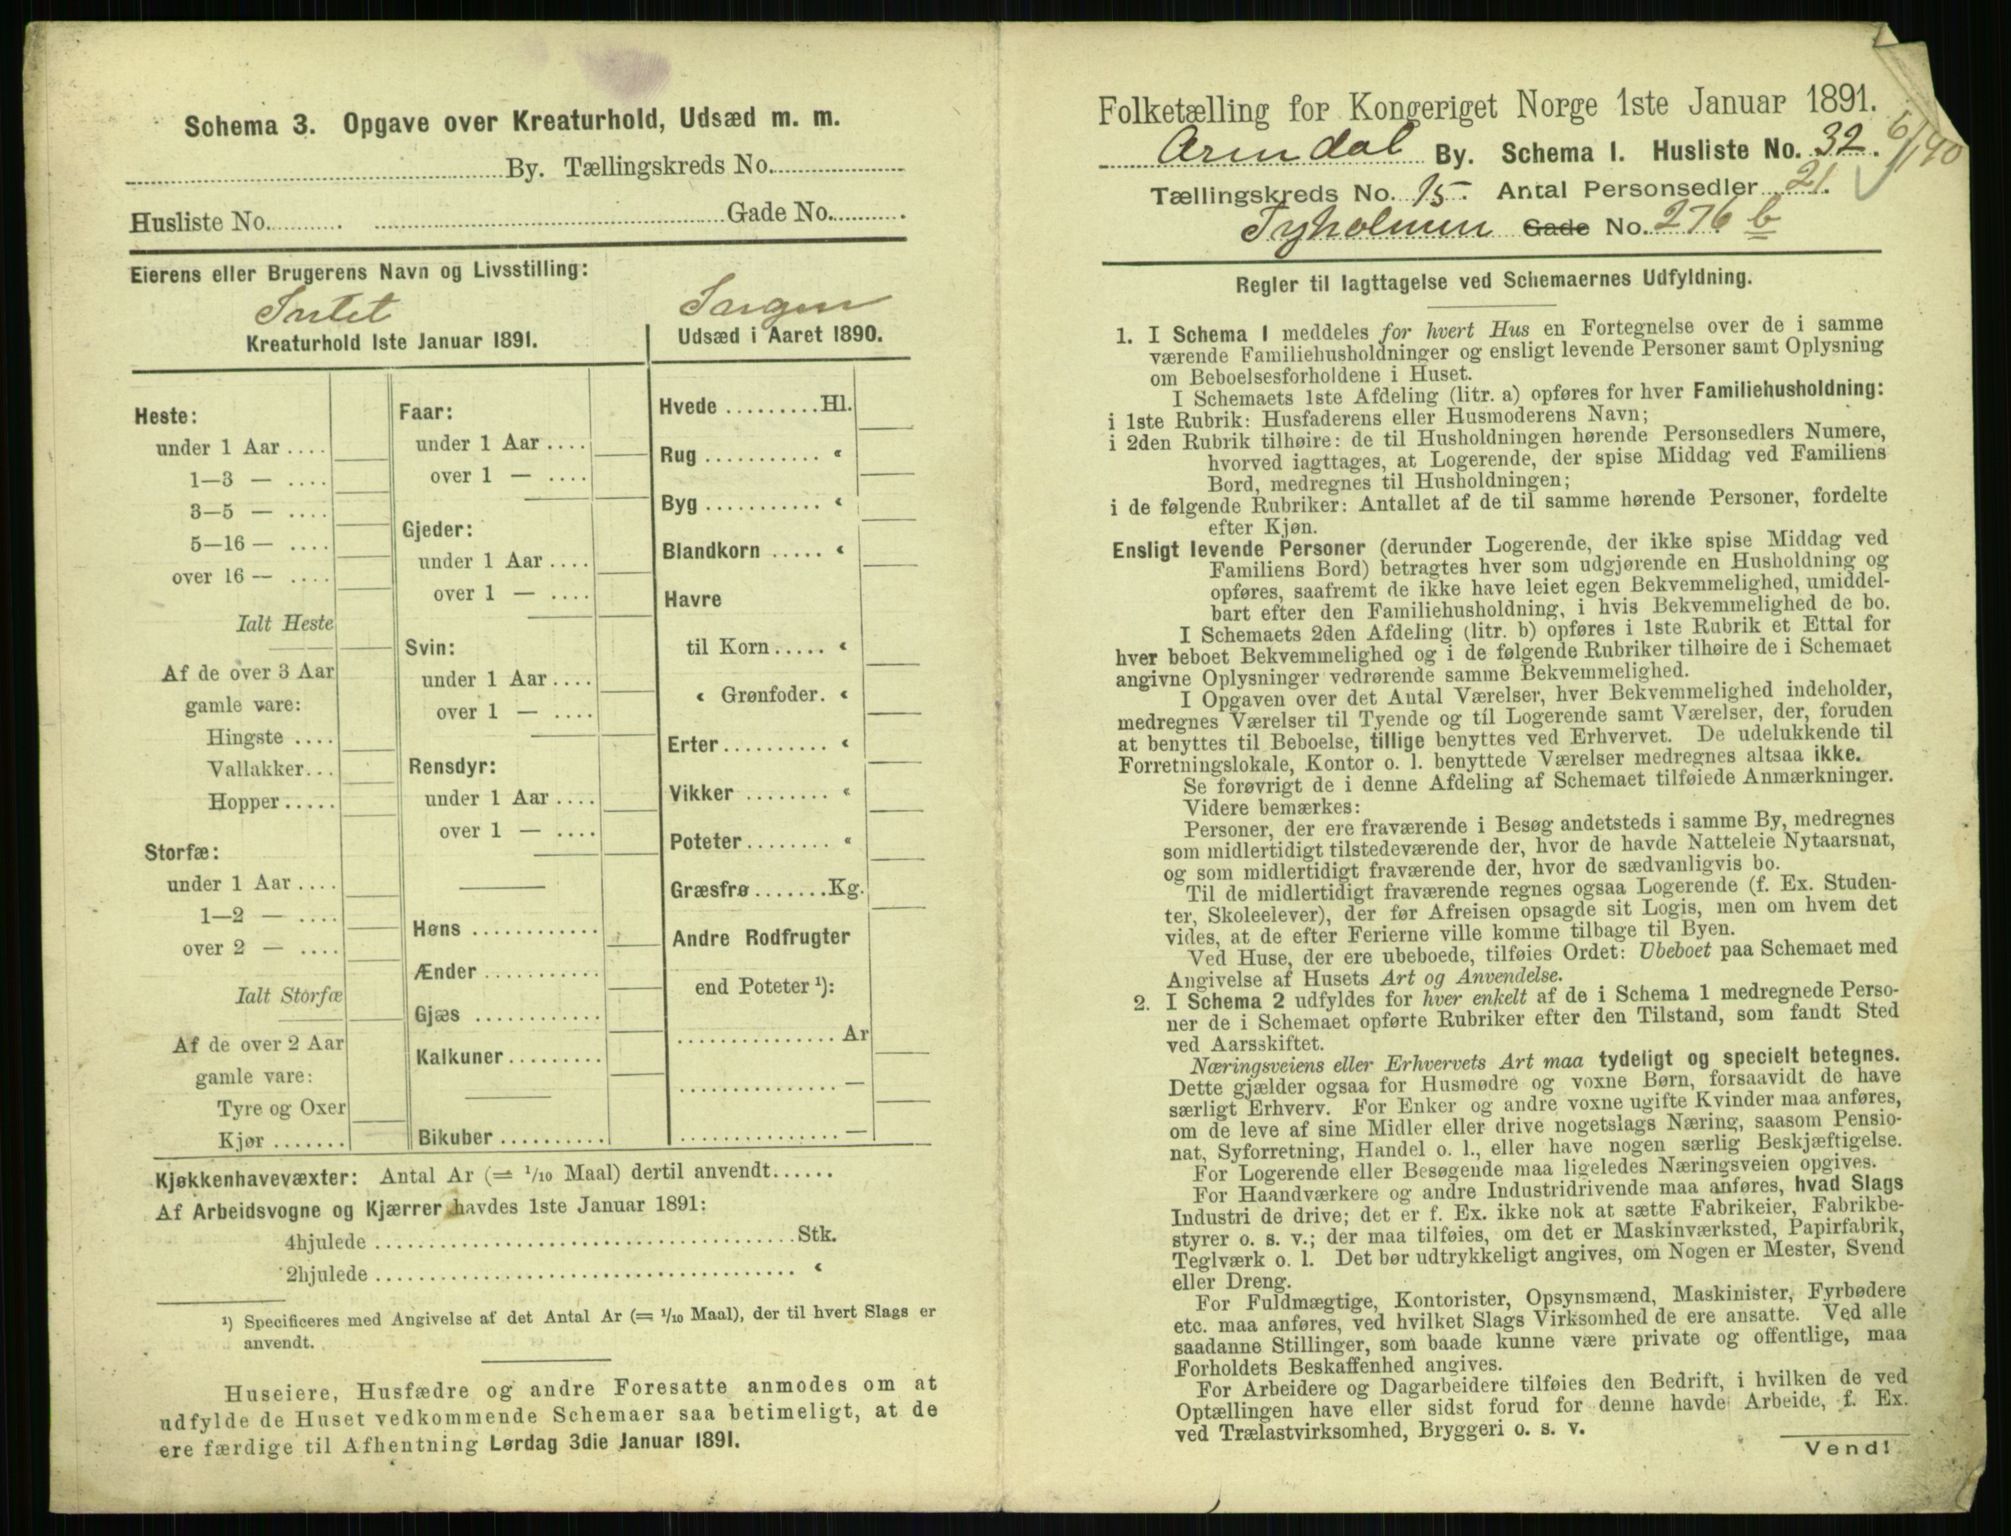 Schema 3. Opgave over Kreaturhold, Udsæd m. m.
By. Tællingskreds No.
Husliste No. Gade No.
Eierens eller Brugerens Navn og Livsstilling:
Intet Ingen
Kreaturhold 1ste Januar 1891.
Udsæd i Aaret 1890.
Heste:
under 1 Aar ....
1—3 — ....
3—5 — ....
5—16 — ....
over 16 — ....
Ialt Heste
Af de over 3 Aar
gamle vare:
Hingste ....
Vallakker...
Hopper.....
Storfæ:
under 1 Aar....
1—2 — ....
over 2 — ....
Ialt Storfæ
Af de over 2 Aar
gamle vare:
Tyre og Oxer
Kjør.......
Faar:
under 1 Aar....
over 1 — ....
Gjeder:
under 1 Aar....
over 1 — ....
Svin:
under 1 Aar....
over 1 — ....
Rensdyr:
under 1 Aar....
over 1 — ....
Høns ............
Ænder ...........
Gjæs ............
Kalkuner.........
Bikuber ..........
Hvede .........Hl.
Rug ........... «
Byg ........... «
Blandkorn ..... «
Havre
til Korn ..... «
« Grønfoder. «
Erter.......... «
Vikker ........ «
Poteter........ «
Græsfrø .......Kg.
Andre Rodfrugter
end Poteter ¹):
............... Ar
............... —
............... —
Kjøkkenhavevæxter: Antal Ar (= 1/10 Maal) dertil anvendt......
Af Arbeidsvogne og Kjærrer havdes 1ste Januar 1891:
4hjulede ........................................Stk.
2hjulede ........................................ «
¹) Specificeres med Angivelse af det Antal Ar (= 1/10 Maal), der til hvert Slags er
anvendt.
Huseiere, Husfædre og andre Foresatte anmodes om at
udfylde de Huset vedkommende Schemaer saa betimeligt, at de
ere færdige til Afhentning Lørdag 3die Januar 1891.
Folketælling for Kongeriget Norge 1ste Januar 1891.
Arendal By. Schema 1. Husliste No. 32.
Tællingskreds No. 15. Antal Personsedler 21.
Tyholmen Gade No. 276 b
Regler til Iagttagelse ved Schemaernes Udfyldning.
1. I Schema 1 meddeles for hvert Hus en Fortegnelse over de i samme
værende Familiehusholdninger og ensligt levende Personer samt Oplysning
om Beboelsesforholdene i Huset.
I Schemaets 1ste Afdeling (litr. a) opføres for hver Familiehusholdning:
i 1ste Rubrik: Husfaderens eller Husmoderens Navn;
i 2den Rubrik tilhøire: de til Husholdningen hørende Personsedlers Numere,
hvorved iagttages, at Logerende, der spise Middag ved Familiens
Bord, medregnes til Husholdningen;
i de følgende Rubriker: Antallet af de til samme hørende Personer, fordelte
efter Kjøn.
Ensligt levende Personer (derunder Logerende, der ikke spise Middag ved
Familiens Bord) betragtes hver som udgjørende en Husholdning og
opføres, saafremt de ikke have leiet egen Bekvemmelighed, umiddel-
bart efter den Familiehusholdning, i hvis Bekvemmelighed de bo.
I Schemaets 2den Afdeling (litr. b) opføres i 1ste Rubrik et Ettal for
hver beboet Bekvemmelighed og i de følgende Rubriker tilhøire de i Schemaet
angivne Oplysninger vedrørende samme Bekvemmelighed.
I Opgaven over det Antal Værelser, hver Bekvemmelighed indeholder,
medregnes Værelser til Tyende og til Logerende samt Værelser, der, foruden
at benyttes til Beboelse, tillige benyttes ved Erhvervet. De udelukkende til
Forretningslokale, Kontor o. l. benyttede Værelser medregnes altsaa ikke.
Se forøvrigt de i denne Afdeling af Schemaet tilføiede Anmærkninger.
Videre bemærkes:
Personer, der ere fraværende i Besøg andetsteds i samme By, medregnes
som midlertidigt tilstedeværende der, hvor de havde Natteleie Nytaarsnat,
og som midlertidigt fraværende der, hvor de sædvanligvis bo.
Til de midlertidigt fraværende regnes ogsaa Logerende (f. Ex. Studen-
ter, Skoleelever), der før Afreisen opsagde sit Logis, men om hvem det
vides, at de efter Ferierne ville komme tilbage til Byen.
Ved Huse, der ere ubeboede, tilføies Ordet: Ubeboet paa Schemaet med
Angivelse af Husets Art og Anvendelse.
2. I Schema 2 udfyldes for hver enkelt af de i Schema 1 medregnede Perso-
ner de i Schemaet opførte Rubriker efter den Tilstand, som fandt Sted
ved Aarsskiftet.
Næringsveiens eller Erhvervets Art maa tydeligt og specielt betegnes.
Dette gjælder ogsaa for Husmødre og voxne Børn, forsaavidt de have
særligt Erhverv. For Enker og andre voxne ugifte Kvinder maa anføres,
om de leve af sine Midler eller drive nogetslags Næring, saasom Pensio-
nat, Syforretning, Handel o. l., eller have nogen særlig Beskjæftigelse.
For Logerende eller Besøgende maa ligeledes Næringsveien opgives.
For Haandværkere og andre Industridrivende maa anføres, hvad Slags
Industri de drive; det er f. Ex. ikke nok at sætte Fabrikeier, Fabrikbe-
styrer o. s. v.; der maa tilføies, om det er Maskinværksted, Papirfabrik,
Teglværk o. l. Det bør udtrykkeligt angives, om Nogen er Mester, Svend
eller Dreng.
For Fuldmægtige, Kontorister, Opsynsmænd, Maskinister, Fyrbødere
etc. maa anføres, ved hvilket Slags Virksomhed de ere ansatte. Ved alle
saadanne Stillinger, som baade kunne være private og offentlige, maa
Forholdets Beskaffenhed angives.
For Arbeidere og Dagarbeidere tilføies den Bedrift, i hvilken de ved
Optællingen have eller sidst forud for denne havde Arbeide, f. Ex.
ved Trælastvirksomhed, Bryggeri o. s. v.
Vend!